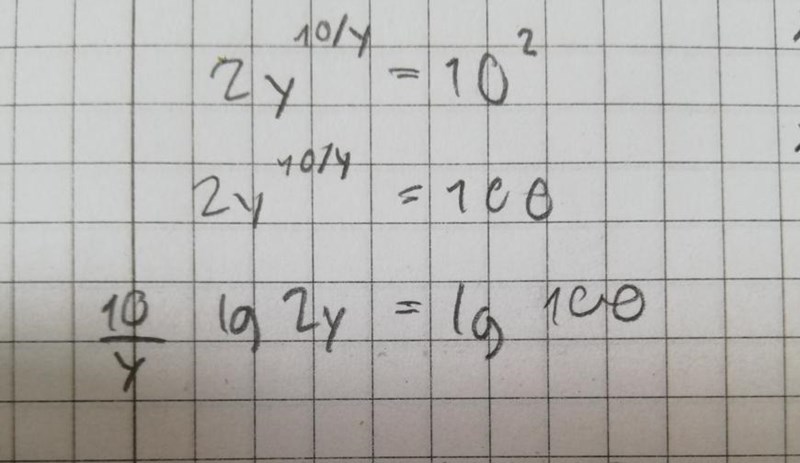 2y^{10/y} = 10^2
2y^{10/y} = 100
\frac{10}{y} lg 2y = lg 100